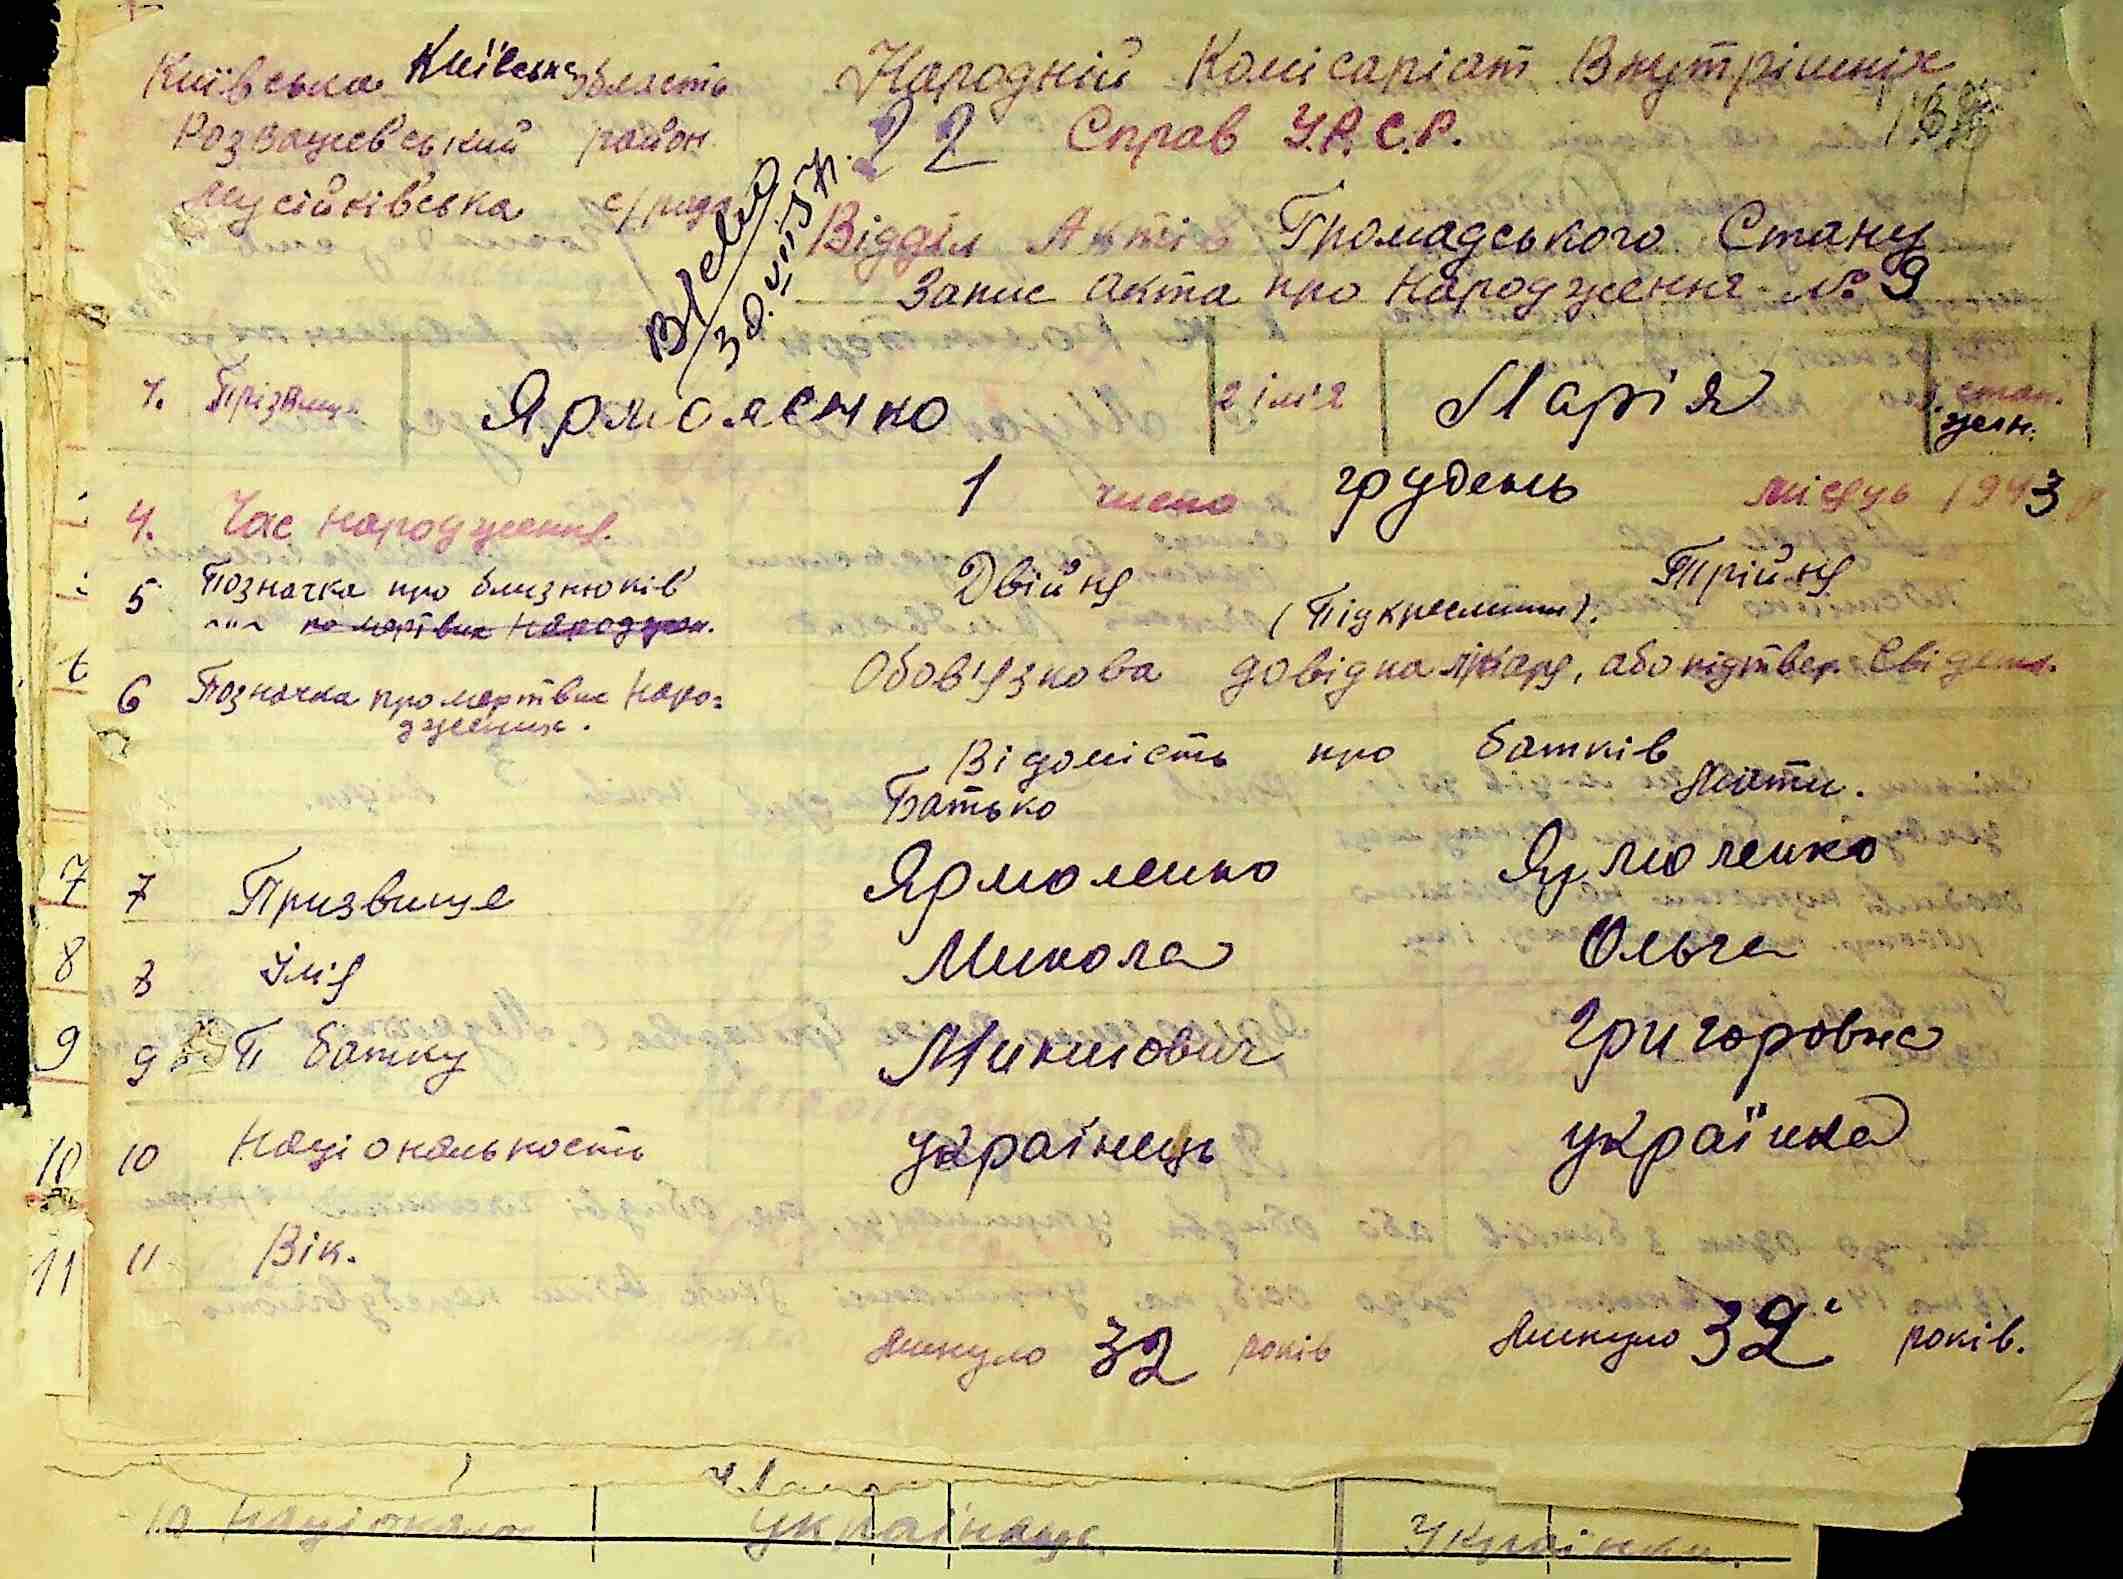 Київська Київська область
Розважевський район
Мусійківська с/рада
Народній Комісаріат Внутрішніх
Справ У.Р.С.Р.
22
Відділ Актів Громадського Стану
Запис акта про народження № 9
1. Прізвище Ярмоленко 2 імя Марія 3. стать жен.
4. Час народження. 1 число грудень місяць 1943 р
5 Позначка про близнюків Двійня (Підкреслити). Трійня
-"- по мертвих народжен.
6 Позначка про мертвих наро-
дження.
Обов'язкова довідка лікаря, або підтвер. свідків.
Відомість про батків
Батько Мати.
7 7 Призвище Ярмоленко Ярмоленко
8 8 Імя Микола Ольга
9 9 П батку Микитович Григоровна
10 10 Національность українець українка
11 11 Вік.
минуло 32 років минуло 32 років.
10 Національ українець Українка.